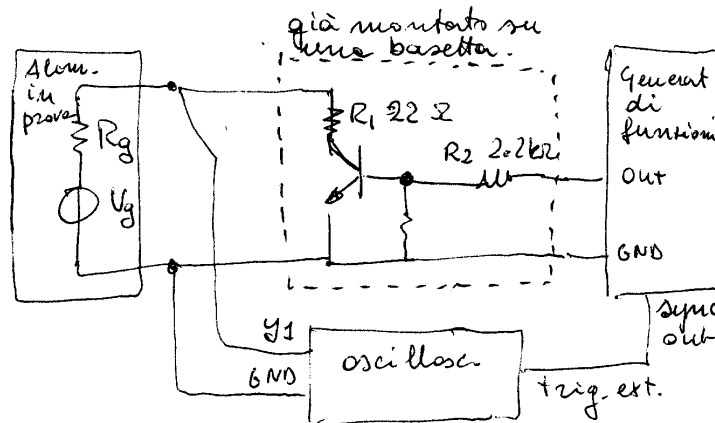 già montato su
una basetta.
Alim.
in
prova
Rg
Vg
R1 22 Ω
R2 2.2kΩ
Generat
di
funzioni
Out
GND
sync
out
Y1
GND
oscillosc.
trig. ext.